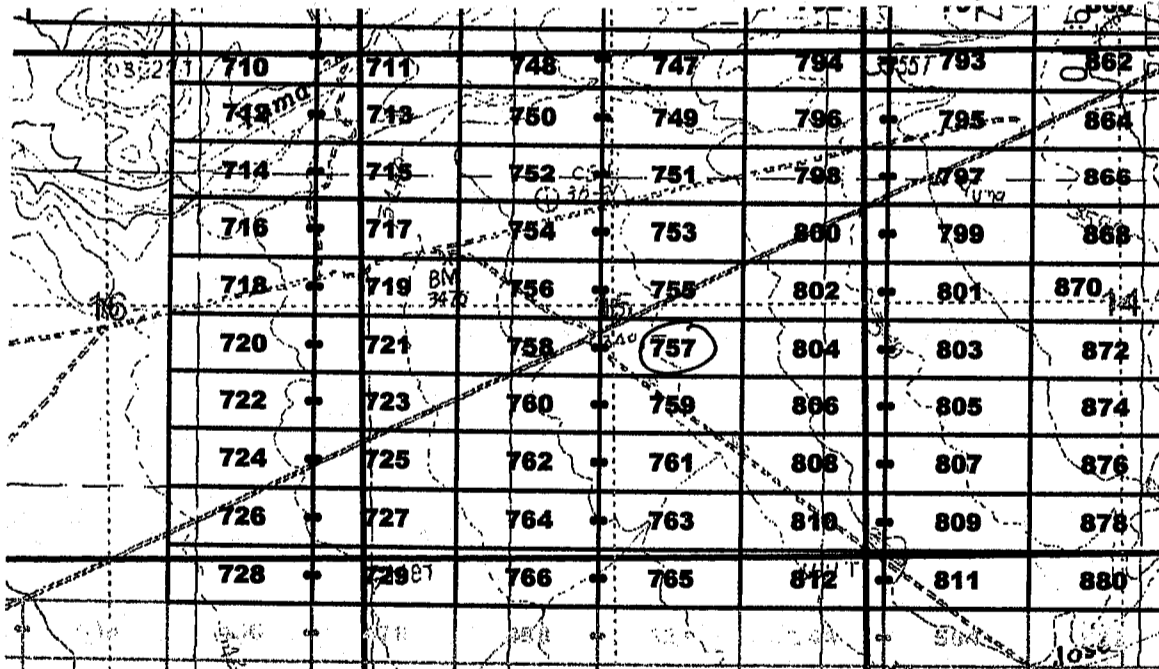 710 711 748 747 794 793 862
712 713 750 749 796 795 864
714 715 752 751 798 797 866
716 717 754 753 800 799 868
718 719 BM 756 755 802 801 870
3475
16 15 14
720 721 758 757 804 803 872
722 723 760 759 806 805 874
724 725 762 761 808 807 876
726 727 764 763 810 809 878
728 729 766 765 812 811 880